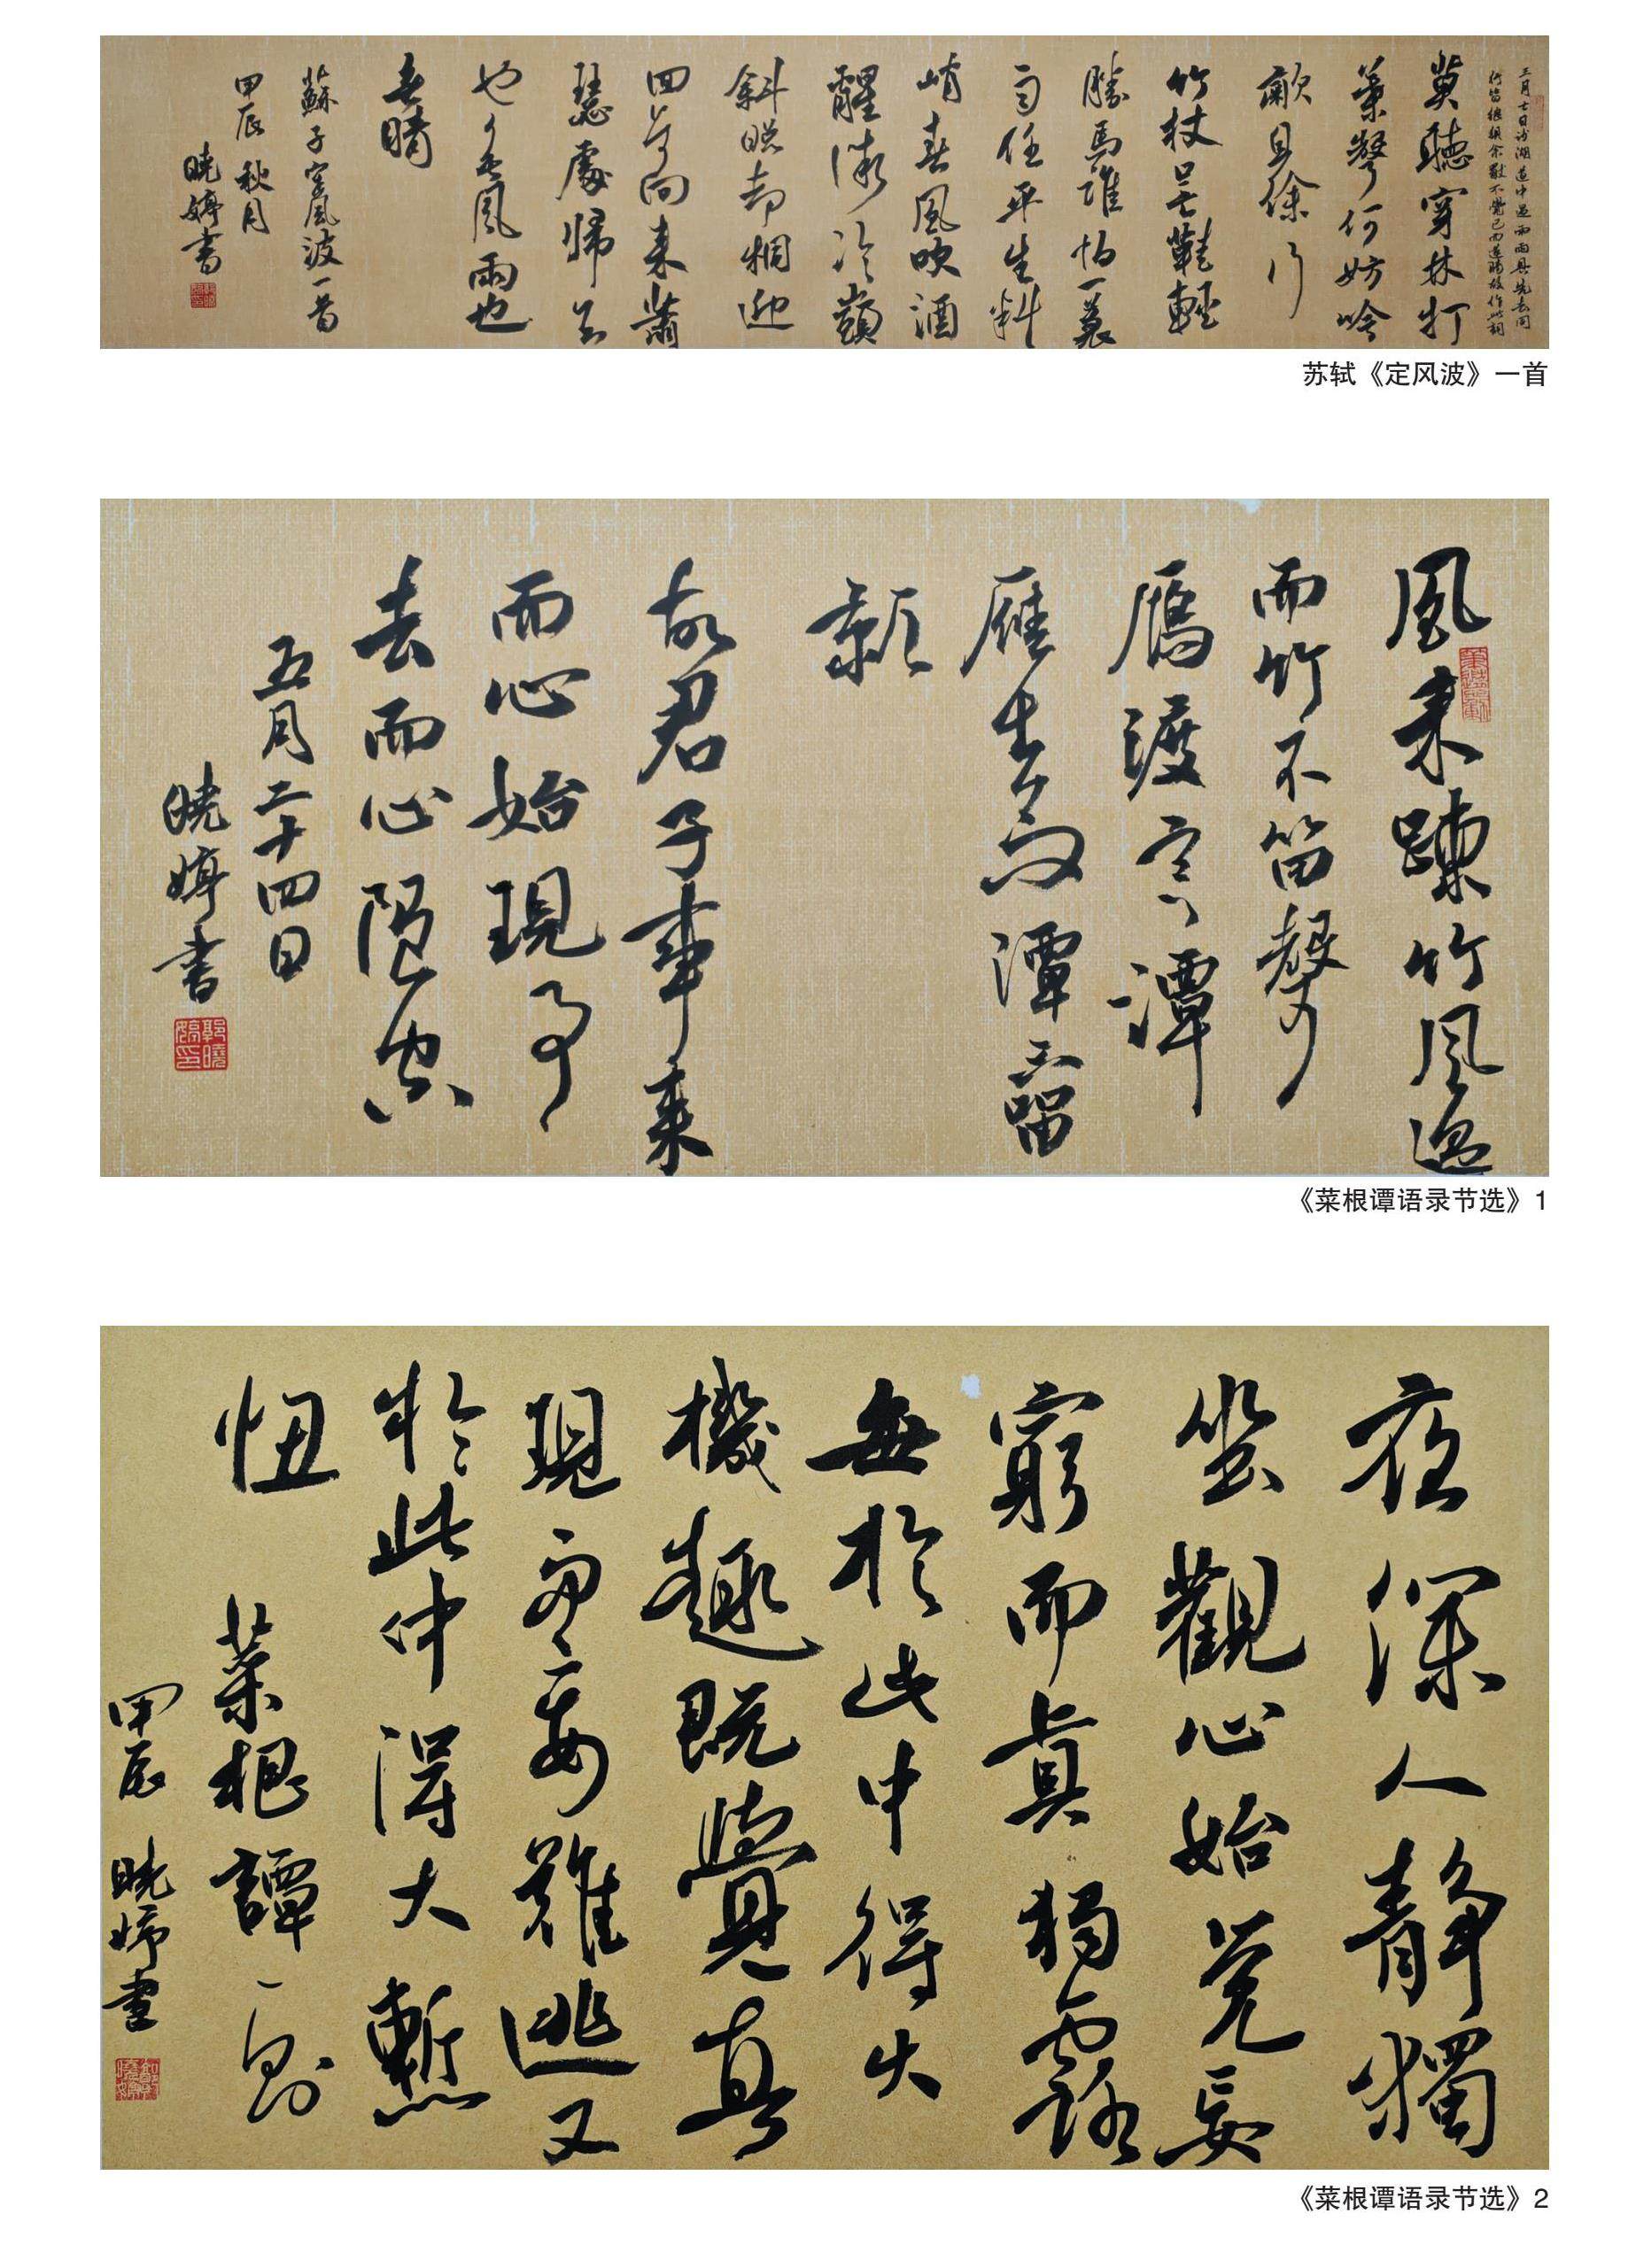 三月七日沙湖道中遇雨雨具先去同
行皆狼狽余獨不覺已而遂晴故作此詞
莫聽穿林打
葉聲何妨吟
歗且徐行
竹杖芒鞋輕
勝馬誰怕一蓑
雨任平生料
峭春風吹酒
醒微冷山頭
斜照却相迎
回首向来蕭
瑟處歸去
也無風雨也
無晴
蘇子定風波一首
甲辰秋月
曉婷書
苏轼《定风波》一首
風来踈竹風過
而竹不留聲
鴈渡寒潭
雁去而潭不留
影
故君子事来
而心始現事
去而心隨空
五月二十四日
曉婷書
郭曉婷印
《菜根谭语录节选》1
夜深人静獨
坐觀心始覺妄
窮而真獨露
每於此中得大
機趣既覺真
現而妄難逃又
於此中得大慚
忸 菜根譚一則
甲辰 曉婷書
《菜根谭语录节选》2